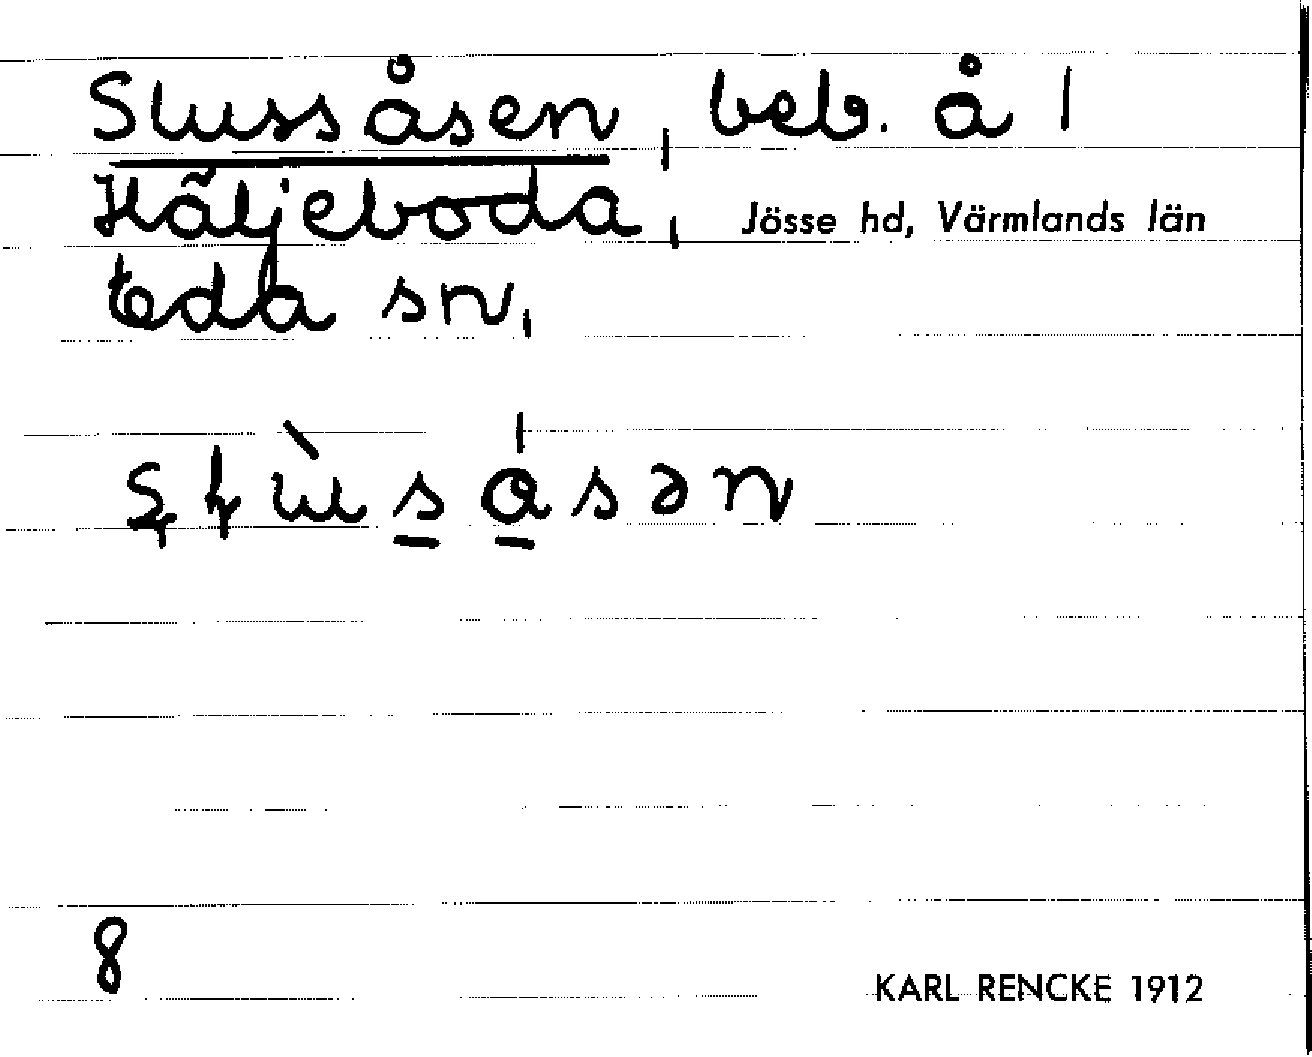 Slussåsen, beb. å 1
Häljeboda, Jösse hd, Värmlands län
Eda sn,
8
KARL RENCKE 1912